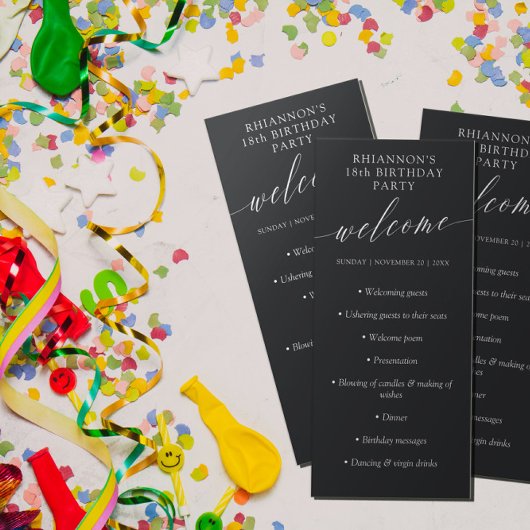 RHIANNON'S
18th BIRTHDAY
PARTY
welcome
SUNDAY | NOVEMBER 20 | 20XX
• Welcoming guests
• Ushering guests to their seats
• Welcome poem
• Presentation
• Blowing of candles & making of
wishes
• Dinner
• Birthday messages
• Dancing & virgin drinks
RHIANNON'S
18th BIRTHDAY
PARTY
welcome
SUNDAY | NOVEM
• Welcom
• Ushering
• W
• Blowing
RHIANNON'S
18th BIRTHDAY
PARTY
NOVEMBER 20 | 20XX
Welcoming guests
guests to their seats
Welcome poem
Presentation
candles & making
wishes
Dinner
messages
& virgin drinks